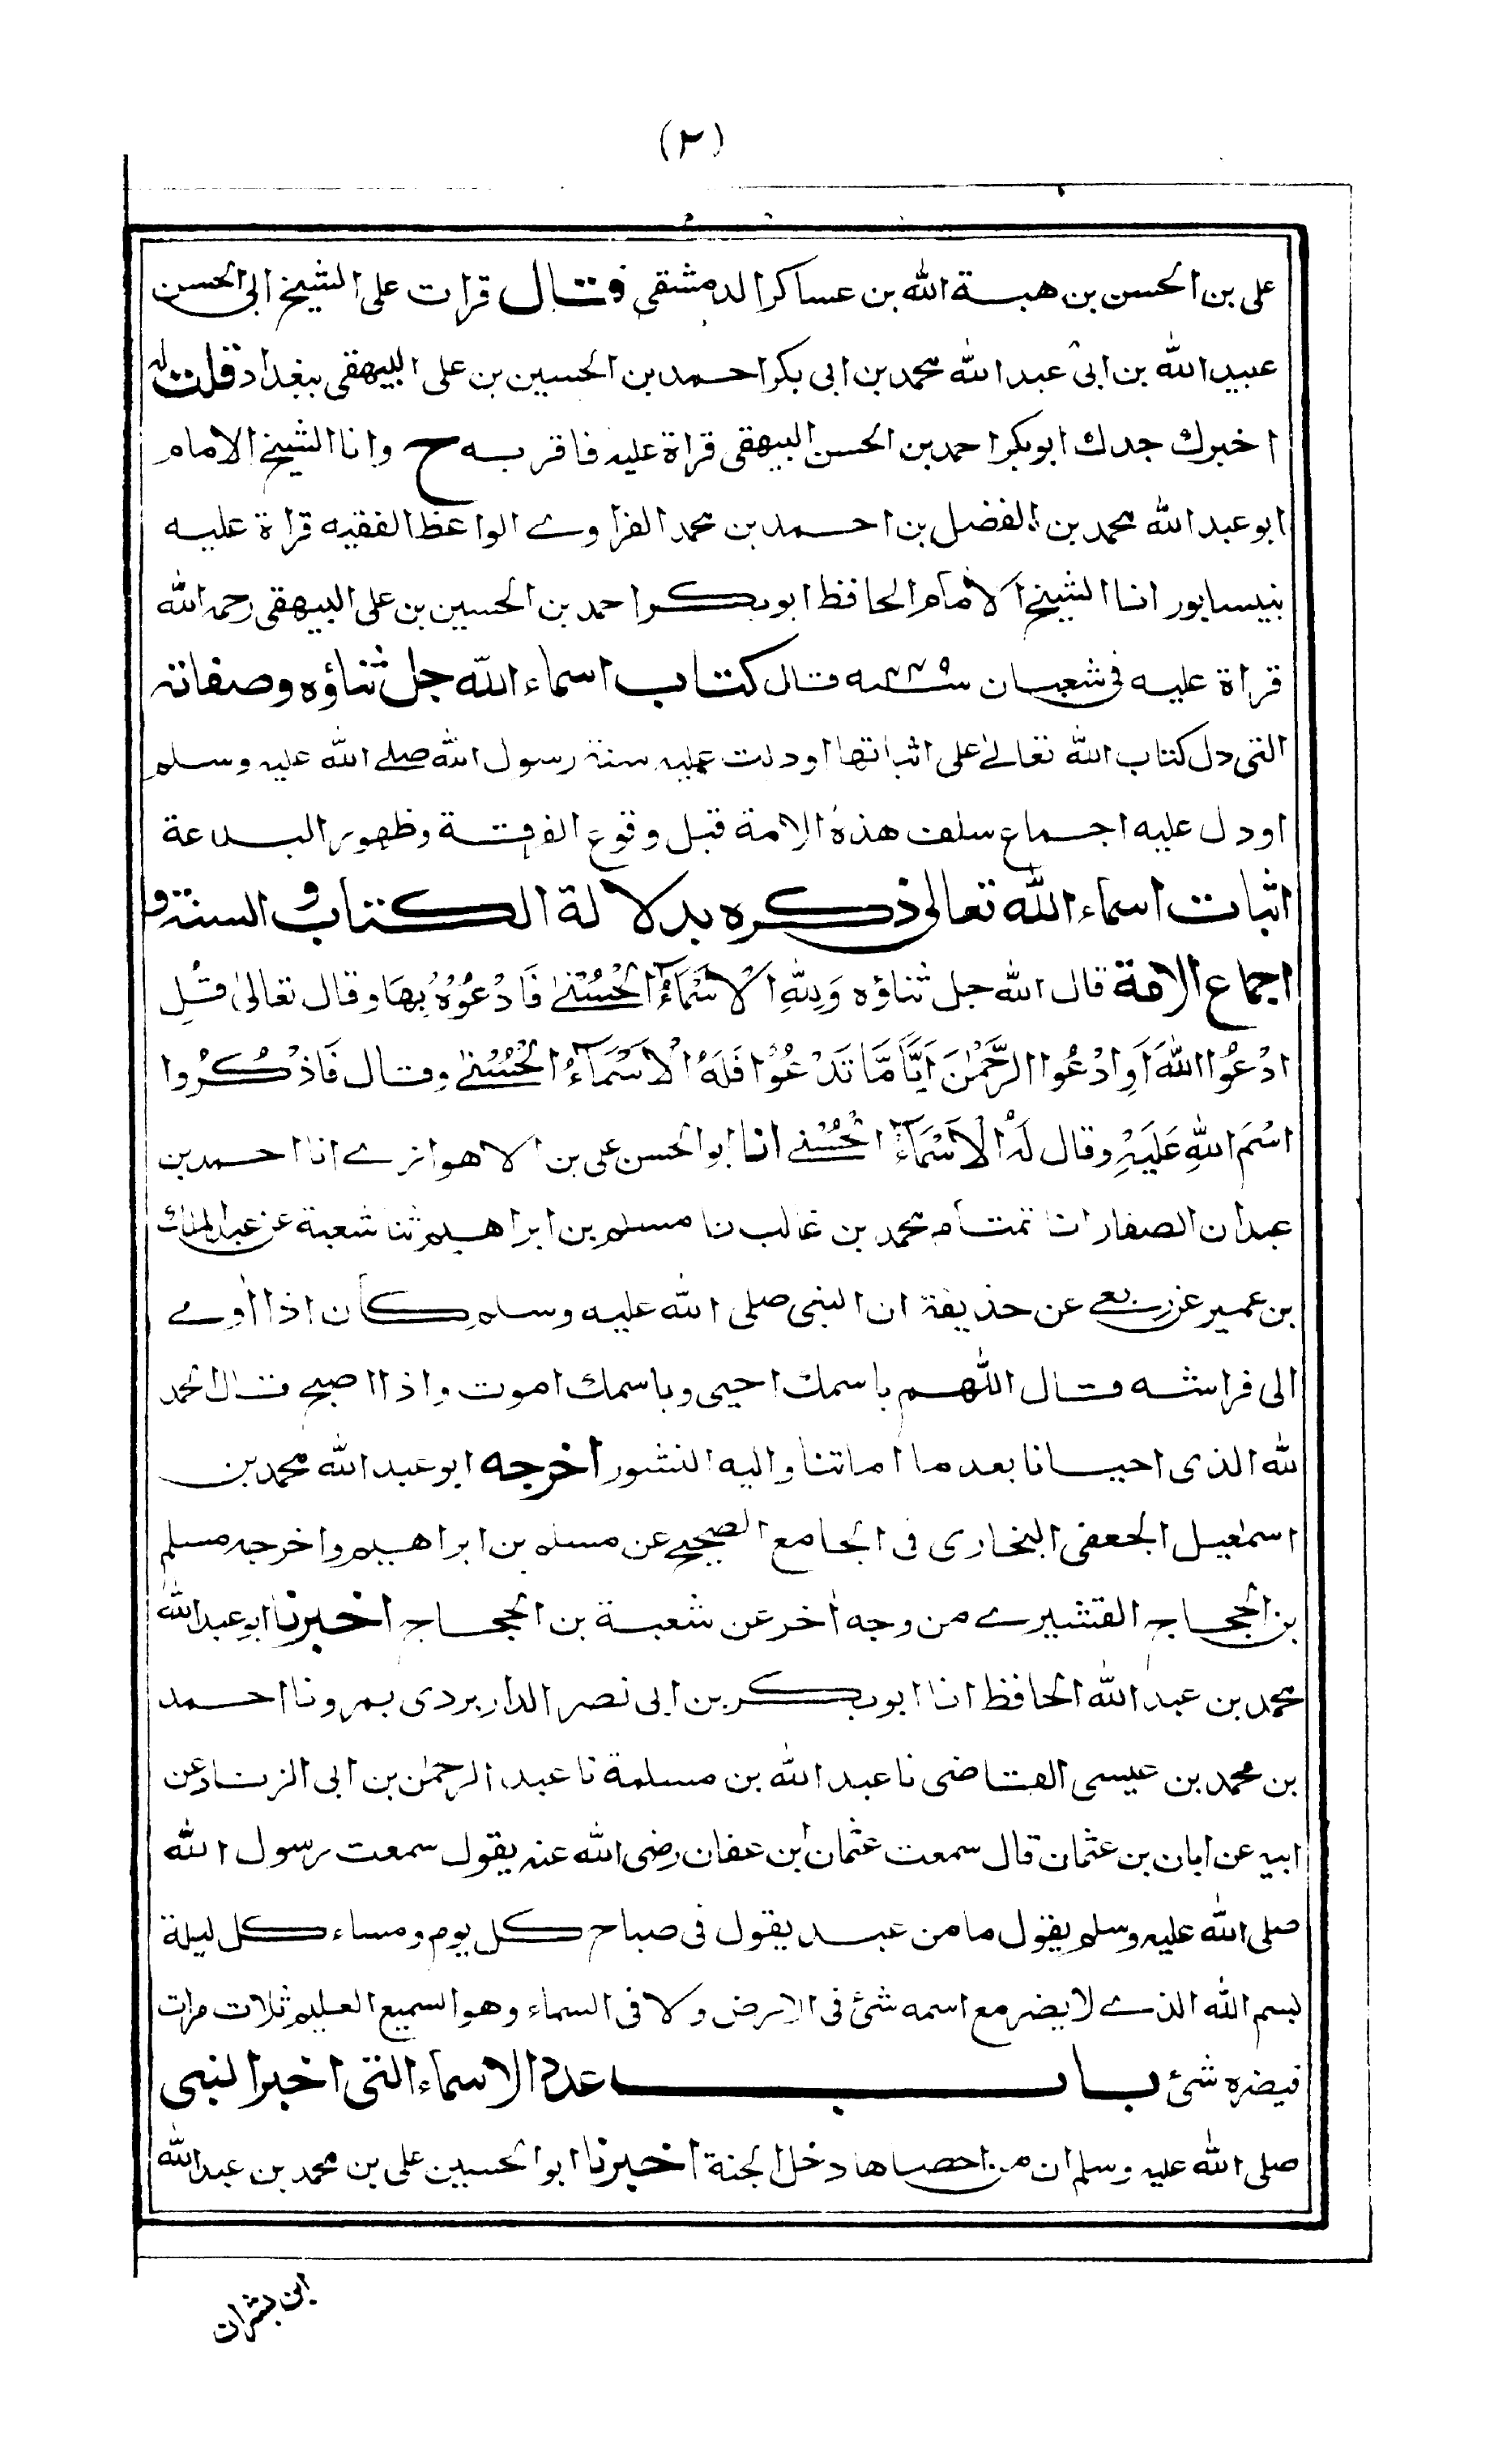 (٢)
على بن الحسن بن هبة الله بن عساكر الدمشقى قال قرات على الشيخ ابى الحسن
عبيد الله بن ابى عبد الله محمد بن ابى بكر احمد بن الحسين بن على البيهقى ببغداد قلت له
اخبرك جدك ابو بكر احمد بن الحسن البيهقى قراة عليه فاقر به ح وانا الشيخ الامام
ابو عبد الله محمد بن الفضل بن احمد بن محمد الفراوے الواعظ الفقيه قراة عليه
بنيسابور انا الشيخ الامام الحافظ ابو بكر احمد بن الحسين بن على البيهقى رحمه الله
قراة عليه فى شعبان سنة ٤٤٩ قال كتاب اسماء الله جل ثناؤه وصفاته
التى دل كتاب الله تعالے على اثباتها او دلت عليه سنة رسول الله صلے الله عليه وسلم
او دل عليه اجماع سلف هذه الامة قبل وقوع الفرقة وظهور البدعة
اثبات اسماء الله تعالى ذكره بدلالة الكتاب و السنة و
اجماع الامة قال الله جل ثناؤه وَلِلّٰهِ الْاَسْمَآءُ الْحُسْنٰى فَادْعُوْهُ بِهَا وقال تعالىٰ قُلِ
ادْعُوا اللّٰهَ اَوِ ادْعُوا الرَّحْمٰنَ اَيًّا مَّا تَدْعُوْا فَلَهُ الْاَسْمَآءُ الْحُسْنٰى وقال فَاذْكُرُوا
اسْمَ اللّٰهِ عَلَيْهِ وقال لَهُ الْاَسْمَآءُ الْحُسْنٰے انا ابو الحسن على بن الاهوازے انا احمد بن
عبدان الصفار انا تمتام محمد بن غالب نا مسلم بن ابراهيم ثنا شعبة عن عبد الملك
بن عمير عن ربعے عن حذيفة ان النبى صلى الله عليه وسلم كان اذا اوے
الى فراشه قال اللهم باسمك احيى وباسمك اموت واذا اصبح قال الحمد
لله الذى احيانا بعد ما اماتنا واليه النشور اخرجه ابو عبد الله محمد بن
اسمٰعيل الجعفى البخارى فى الجامع الصحيح عن مسلم بن ابراهيم واخرجه مسلم
بن الحجاج القشيرے من وجه اٰخر عن شعبة بن الحجاج اخبرنا ابو عبد الله
محمد بن عبد الله الحافظ انا ابو بكر بن ابى نصر الداربردى بمرو نا احمد
بن محمد بن عيسى القاضى نا عبد الله بن مسلمة نا عبد الرحمٰن بن ابى الزناد عن
ابيه عن ابان بن عثمان قال سمعت عثمان ابن عفان رضى الله عنه يقول سمعت رسول الله
صلى الله عليه وسلم يقول ما من عبد يقول فى صباح كل يوم ومساء كل ليلة
بسم الله الذے لا يضر مع اسمه شئ فى الارض ولا فى السماء وهو السميع العليم ثلاث مرات
فيضره شئ باب عدد الاسماء التى اخبر النبى
صلى الله عليه وسلم ان من احصاها دخل الجنة اخبرنا ابو الحسين على بن محمد بن عبد الله
ابن بشران